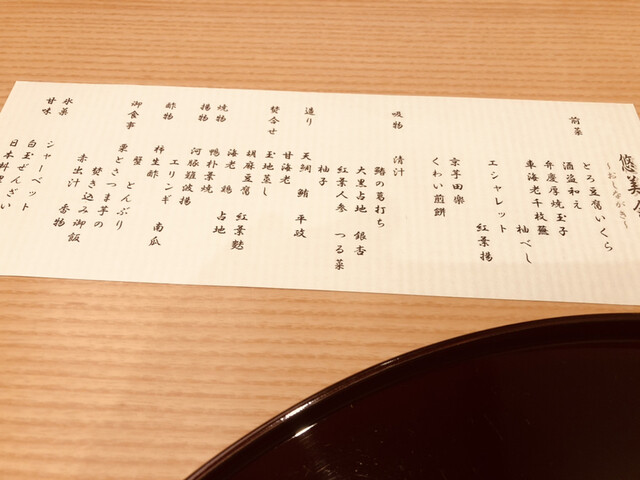 悠美
〜おしながき〜
前菜
とろ豆腐いくら
酒盗和え
弁慶厚焼玉子
車海老千枚蕪
柚べし
エシャレット
紅葉揚
京芋田楽
くわい煎餅
吸物 清汁
鱧の葛打ち
大黒占地 銀杏
紅葉人参 つる菜
柚子
造り 天鯛 鮪 平政
甘海老
焚合せ 玉地蒸し
胡麻豆腐 紅葉麩
海老 鶏 占地
焼物 鴨朴葉焼
揚物 河豚難波揚
エリンギ
酢物 柿生酢 南瓜
蟹 とんぶり
御食事 栗とさつま芋の
焚き込み御飯
赤出汁 香物
氷菓 シャーベット
甘味 白玉ぜんざい
日本料理